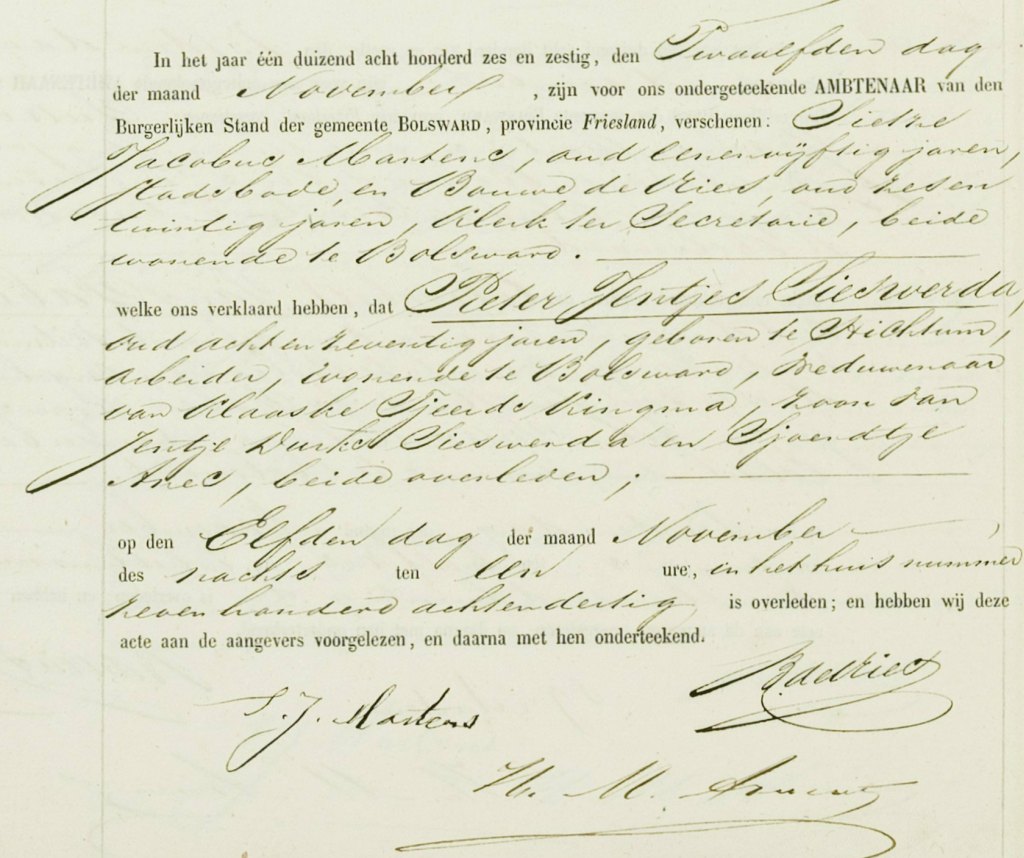 In het jaar één duizend acht honderd zes en zestig, den Twaalfden dag
der maand November, zijn voor ons ondergeteekende AMBTENAAR van den
Burgerlijken Stand der gemeente BOLSWARD, provincie Friesland, verschenen: Sietze
Jacobus Martens, oud eenenvijftig jaren,
stadsbode, en Bouwe de Vries, oud zesen
twintig jaren, Klerk ter Secretarie, beide
wonende te Bolsward.
welke ons verklaard hebben, dat Pieter Jentjes Sieswerda,
oud achtenzeventig jaren, geboren te Hichtum,
arbeider, wonende te Bolsward, Weduwenaar
van Klaaske Tjeerds Kingma, zoon van
Jentje Durks Sieswerda en Sjoerdtje
Anes, beide overleden;
op den Elfden dag der maand November,
des nachts ten een ure, in het huis nummer
zevenhonderd achtendertig is overleden; en hebben wij deze
acte aan de aangevers voorgelezen, en daarna met hen onderteekend.
B. de Vries
S. J. Martens
M.